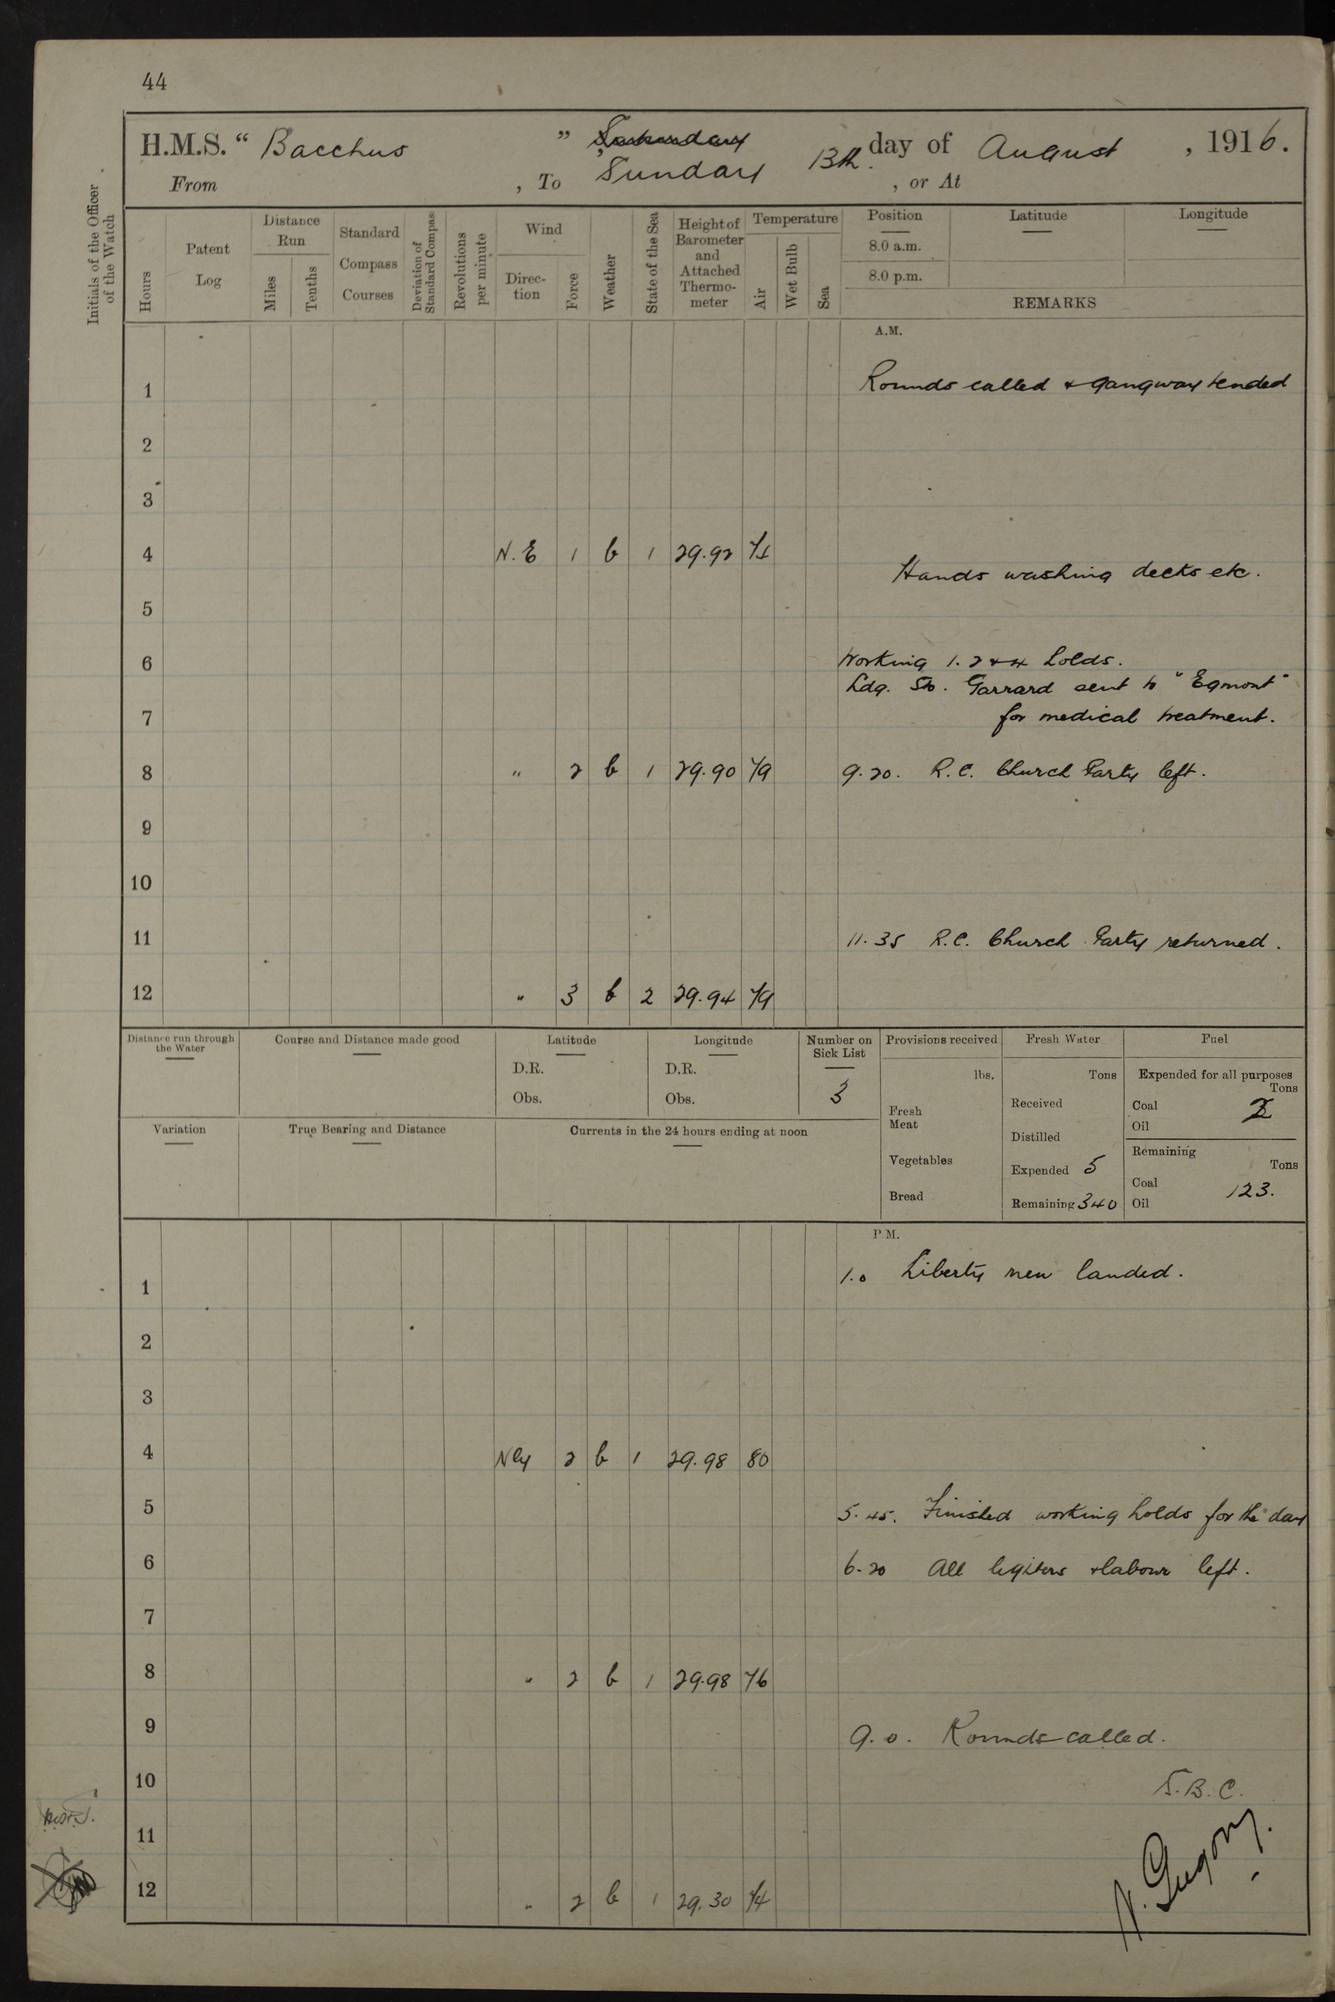 44
H.M.S. " Bacchus " Saturday day of August , 1916.
From , To Sunday 13th. , or At
Initials of the Officer of the Watch
Hours
Patent Log
Distance Run
Miles
Tenths
Standard Compass Courses
Deviation of Standard Compass
Revolutions per minute
Wind
Direction
Force
Weather
State of the Sea
Height of Barometer and Attached Thermometer
Temperature
Air
Wet Bulb
Sea
Position Latitude Longitude
8.0 a.m.
8.0 p.m.
REMARKS
A.M.
1 Rounds called & gangway tended
2
3
4 N.E 1 b 1 29.92
Hands washing decks etc.
5
6 Working 1. 2 & 4 holds.
Ldg. Sto. Garrard sent to "Egmont"
7 for medical treatment.
8 " 2 b 1 29.90 79 9.20. R.C. Church Party left.
9
10
11 11.35 R.C. Church Party returned.
12 " 3 b 2 29.94 79
Distance run through the Water
Course and Distance made good
Latitude
D.R.
Obs.
Longitude
D.R.
Obs.
Number on Sick List
3
Provisions received
lbs.
Fresh Meat
Vegetables
Bread
Fresh Water
Tons
Received
Distilled
Expended 5
Remaining 340
Fuel
Expended for all purposes
Tons
Coal
Oil
Remaining
Tons
Coal
Oil
123.
Variation
True Bearing and Distance
Currents in the 24 hours ending at noon
P.M.
1 1.0 Liberty men landed.
2
3
4 Nly 2 b 1 29.98 80
5 5.45. Finished working holds for the day
6 6.20 All lighters & labour left.
7
8 " 2 b 1 29.98 76
9 9.0. Rounds called.
10 S.B.C.
11
12 " 2 b 1 29.30 74
N. Gregory.